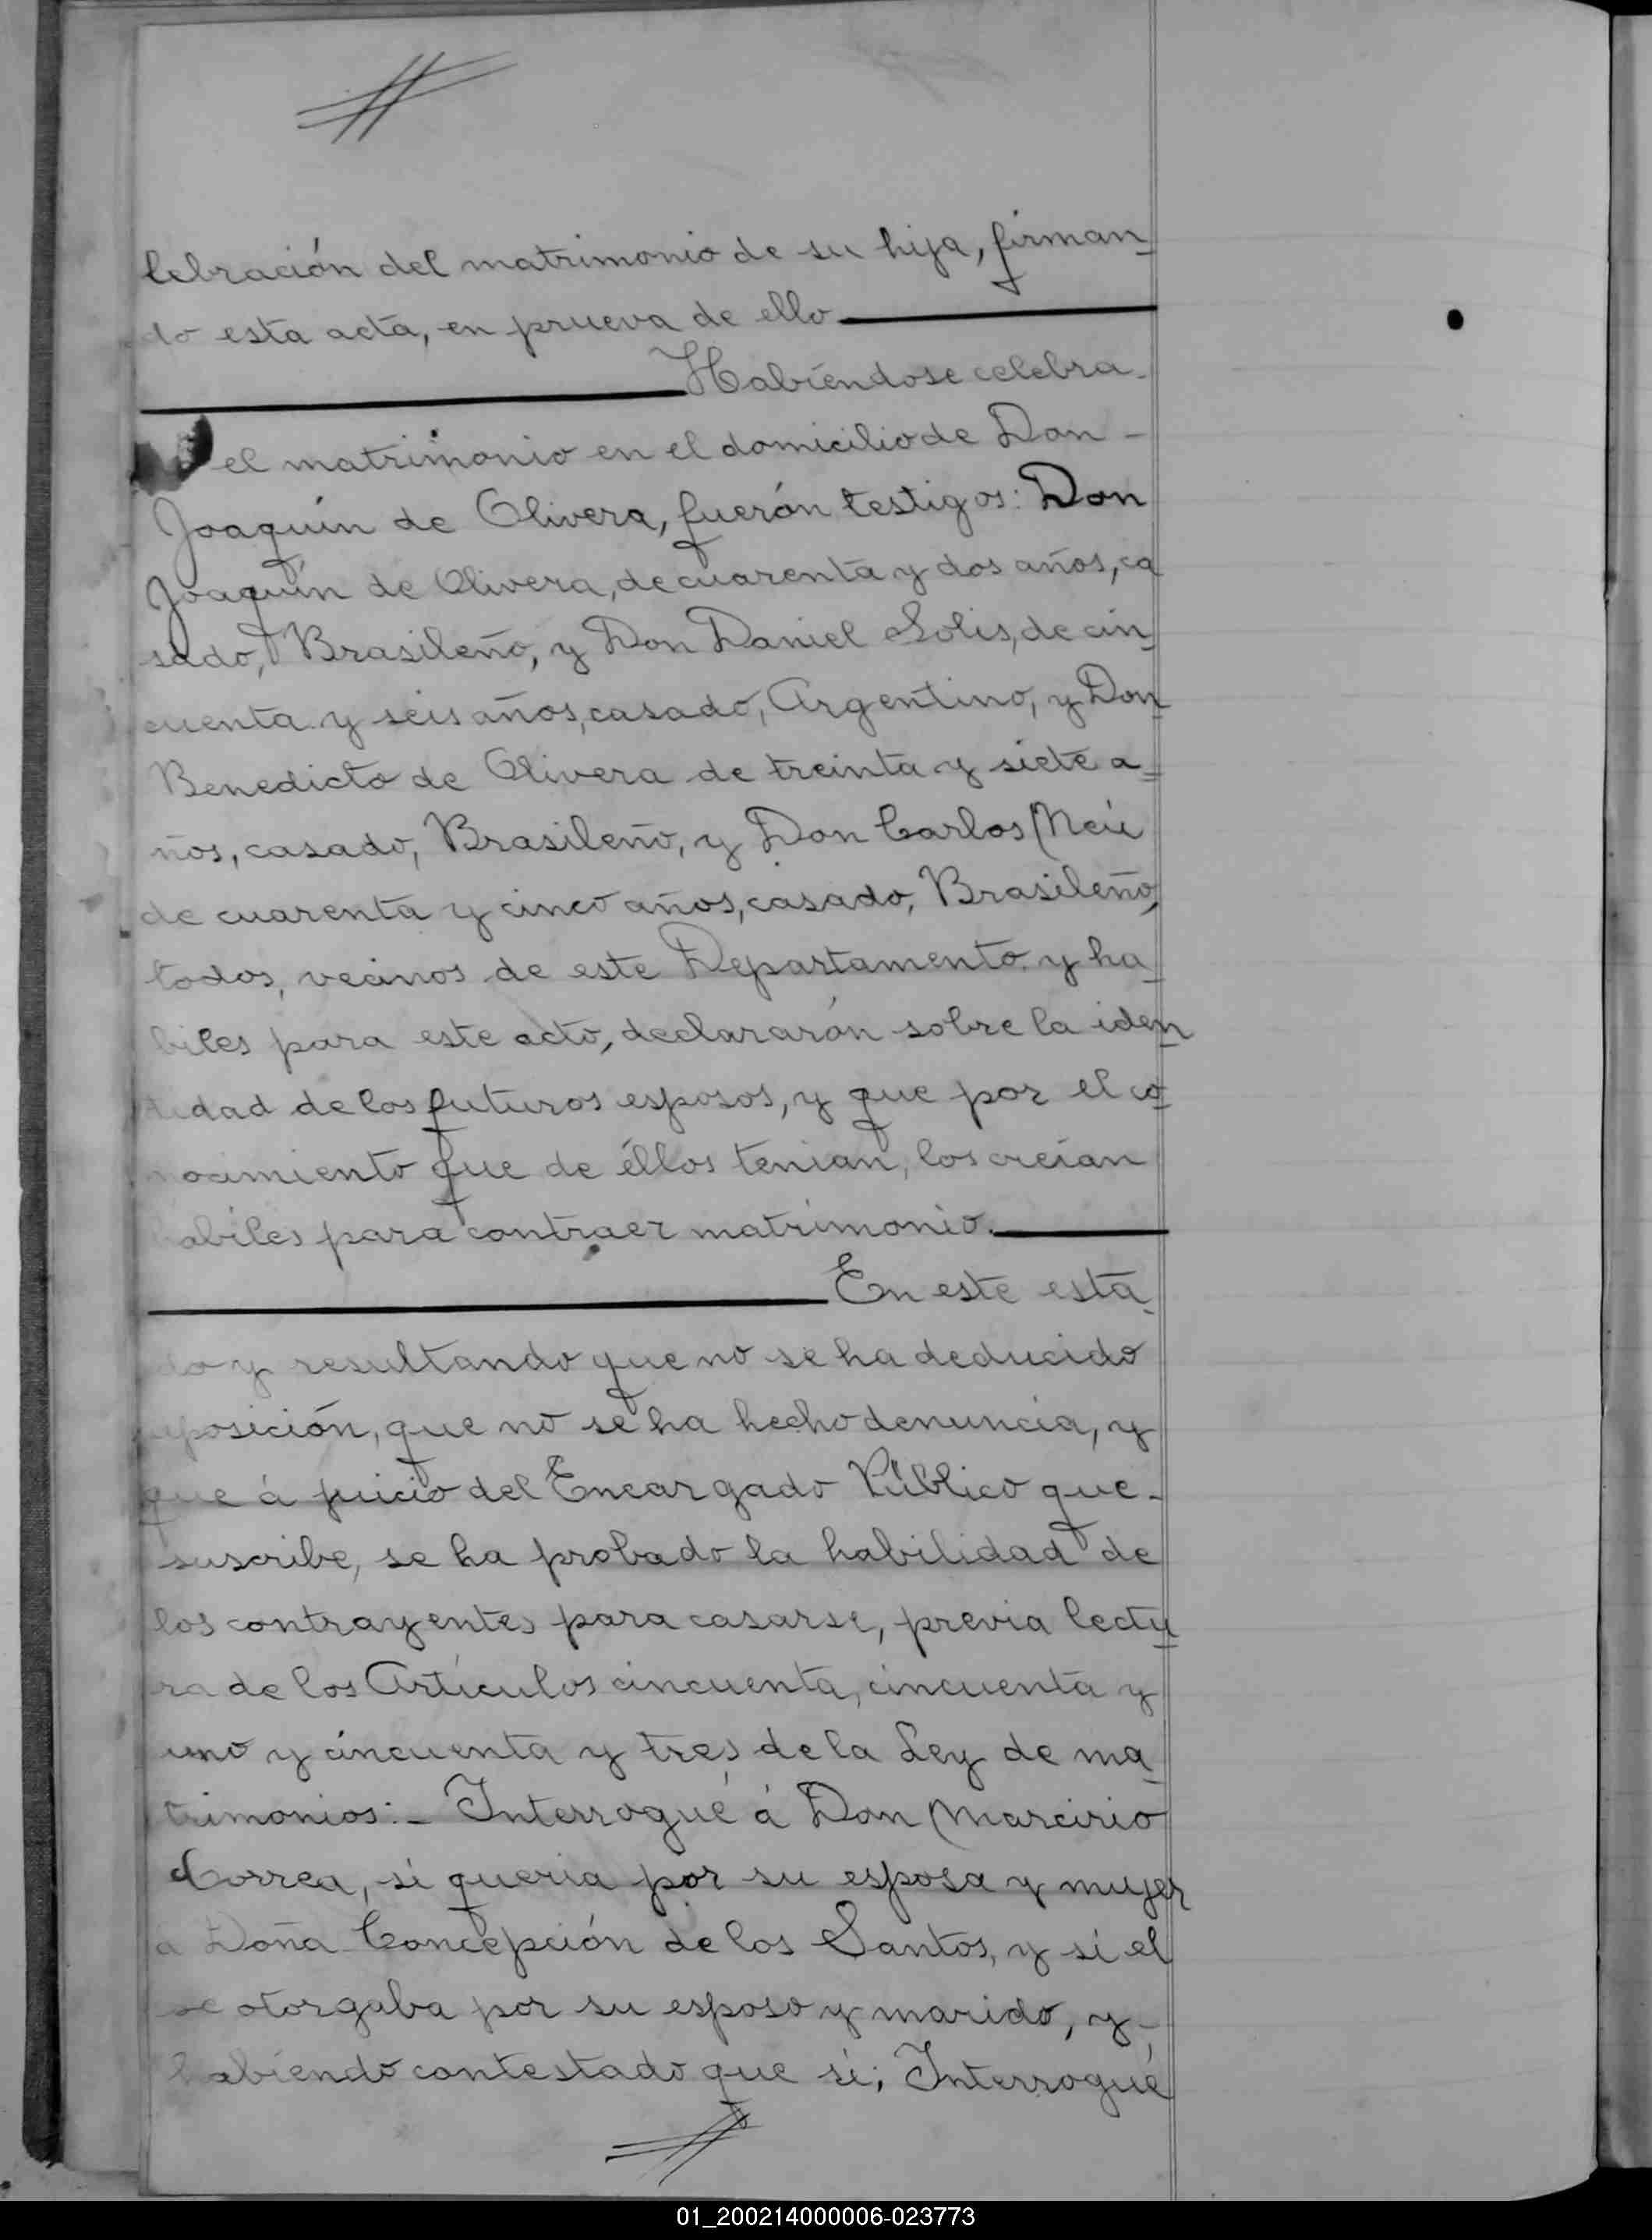 lebración del matrimonio de su hija, firman-
do esta acta, en prueva de ello
Habiéndose celebra-
el matrimonio en el domicilio de Don -
Joaquín de Olivera, fuerón testigos: Don
Joaquín de Olivera, de cuarenta y dos años, ca
sado, Brasileño, y Don Daniel Solis, de cin-
cuenta y seis años, casado, Argentino, y Don
Benedicto de Olivera de treinta y siete a=
ños, casado, Brasileño, y Don Carlos
de cuarenta y cinco años, casado, Brasileño,
todos, vecinos de este Departamento y ha-
biles para este acto, declararón sobre la iden-
tidad de los futuros esposos, y que por el co-
nocimiento que de éllos tenian, los creían
habiles para contraer matrimonio.
En este esta-
do y resultando que no se ha deducido
oposición, que no se ha hecho denuncia, y
que á juicio del Encargado Público que-
suscribe, se ha probado la habilidad de
los contrayentes para casarse, previa lectu-
ra de los Artículos cincuenta, cincuenta y
uno y cincuenta y tres, de la Ley de ma-
trimonios:- Interrogué á Don Marcirio
Correa, si queria por su esposa y mujer
a Doña Concepción de los Santos, y si el
se otorgaba por su esposo y marido, y-
habiendo contestado que sí; Interrogué
01_200214000006-023773